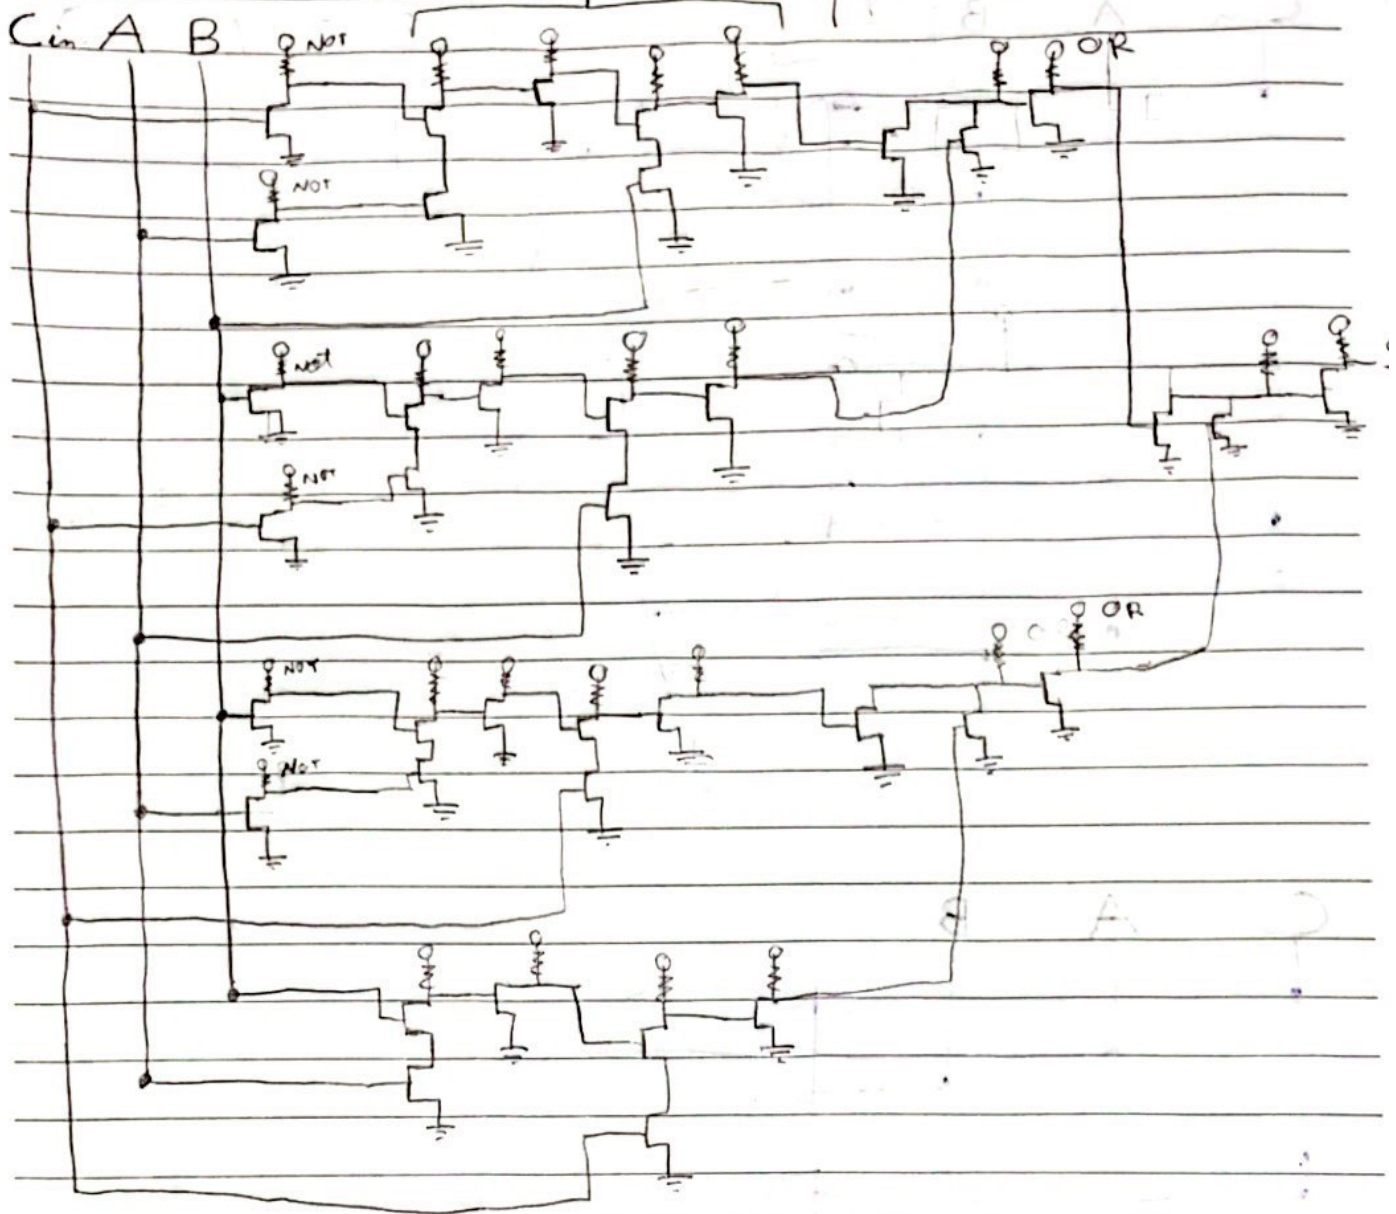 Cin A B
NOT
OR
NOT
Not
NOT
OR
NOT
NOT